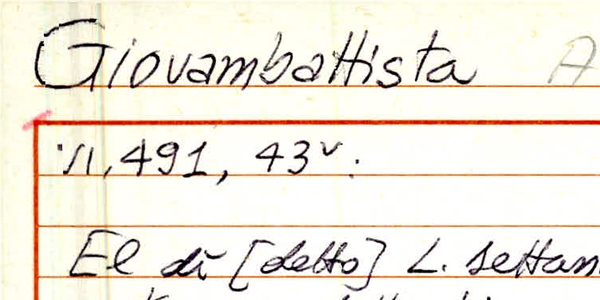 Giovambattista A
11.491, 43v:
El dì [detto] L. settan